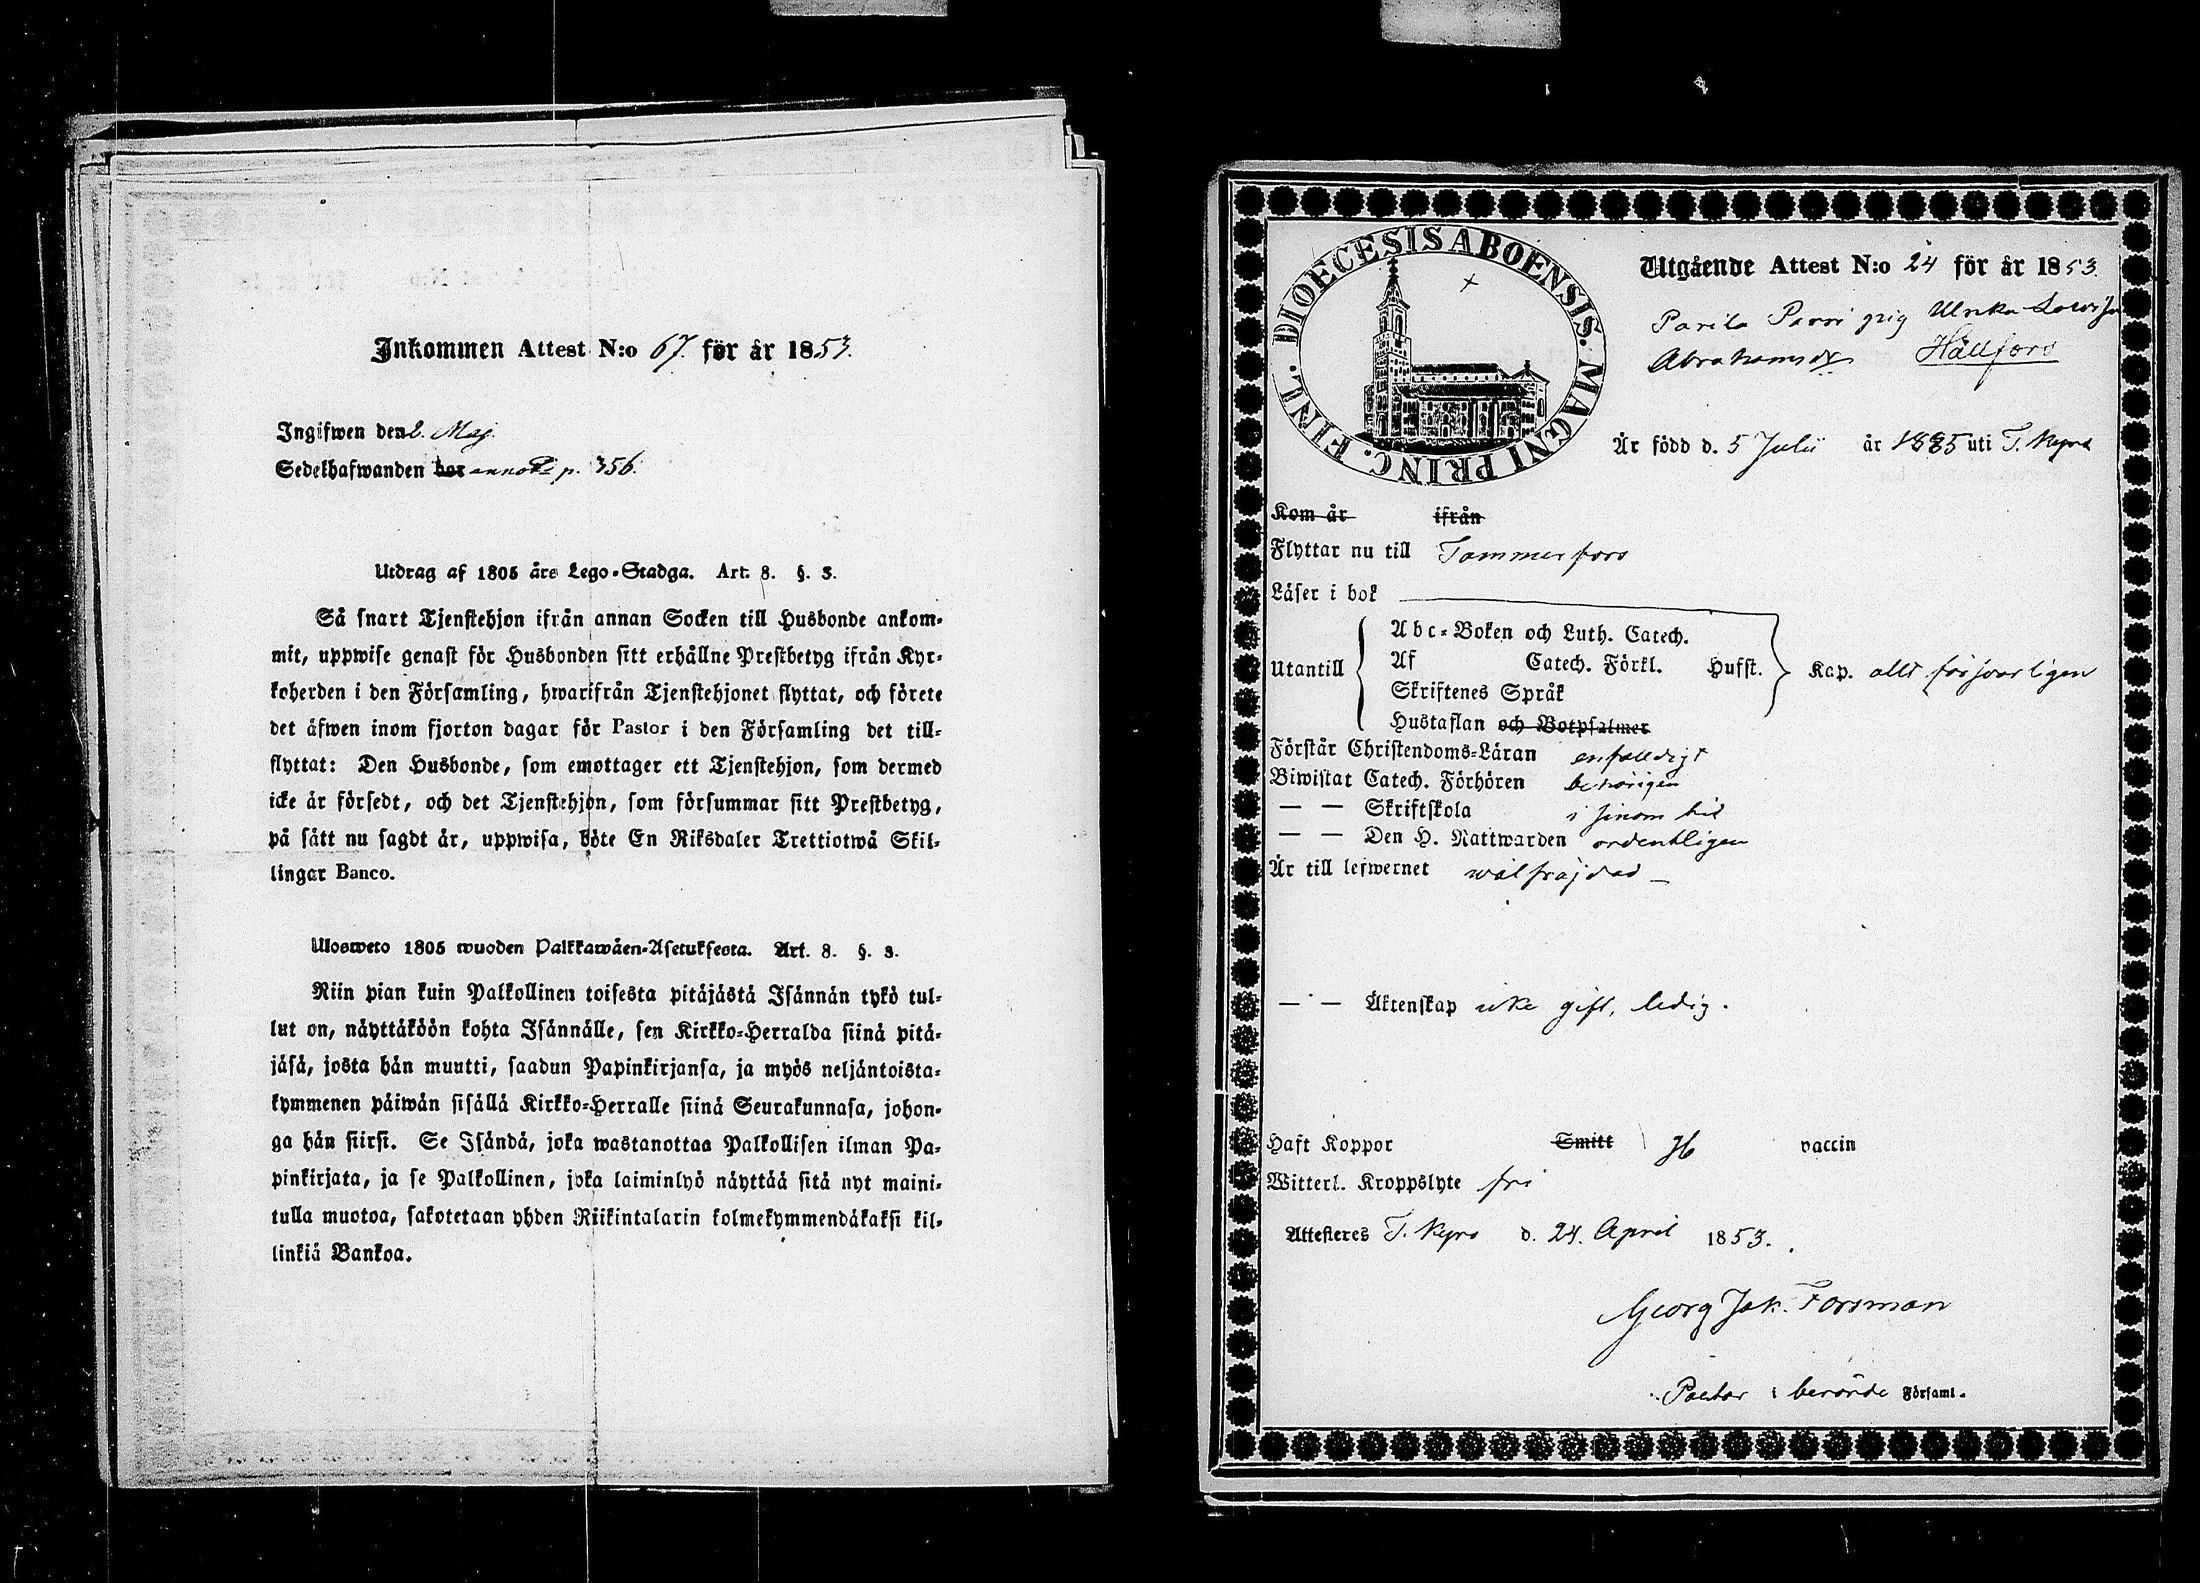 Inkommen Attest N:o 67. för år 1853.
Ingifwen den 2. Maj.
Sedelhafwanden bor annot. p. 356.
Utdrag af 1805 års Lego-Stadga. Art. 8. §. 3.
Så snart Tjenstehjon ifrån annan Socken till Husbonde ankom-
mit, uppwise genast för Husbonden sitt erhållne Prestbetyg ifrån Kyr-
koherden i den Församling, hwarifrån Tjenstehjonet flyttat, och förete
det äfwen inom fjorton dagar för Pastor i den Församling det till-
flyttat: Den Husbonde, som emottager ett Tjenstehjon, som dermed
icke är försedt, och det Tjenstehjon, som försummar sitt Prestbetyg,
på sätt nu sagdt är, uppwisa, böte En Riksdaler Trettiotwå Skil-
lingar Banco.
Ulosweto 1805 wuoden Palkkawäen-Asetuksesta. Art. 8. §. 3.
Niin pian kuin Palkollinen toisesta pitäjästä Isännän tykö tul-
lut on, näyttäköön kohta Isännälle, sen Kirkko-Herralda siinä pitä-
jäsä, josta hän muutti, saadun Papinkirjansa, ja myös neljäntoista-
kymmenen päiwän sisällä Kirkko-Herralle siinä Seurakunnasa, johon-
ga hän siirsi. Se Isändä, joka wastanottaa Palkollisen ilman Pa-
pinkirjata, ja se Palkollinen, joka laiminlyö näyttää sitä nyt maini-
tulla muotoa, sakotetaan yhden Riikintalarin kolmekymmendäkaksi kil-
linkiä Bankoa.
DIOECESIS ABOENSIS. MAGNI PRINC. FINL.
Utgående Attest N:o 24 för år 1853.
Parila Parri pig Ulrika Lovisa
Abrahamsdr Hällfors
Är född d. 5 Julii år 1835 uti T. Kyro
Kom år ifrån
Flyttar nu till Tammerfors
Läser i bok
Utantill
Abc-Boken och Luth. Catech.
Af Catech. Förkl. Hufst. Kap. allt försvarligen
Skriftenes Språk
Hustaflan och Botpsalmer
Förstår Christendoms-Läran enfalldigt
Biwistat Catech. Förhören behörigen
— — Skriftskola i sinom tid
— — Den H. Nattwarden ordentligen
Är till lefwernet wälfräjdad —
— — Äktenskap icke gift, ledig.
Haft Koppor Smitt vaccin
Witterl. Kroppslyte fri
Attesteres T. Kyro d. 24. April 1853.
Georg Jak. Forsman
Pastor i berörde Församl.